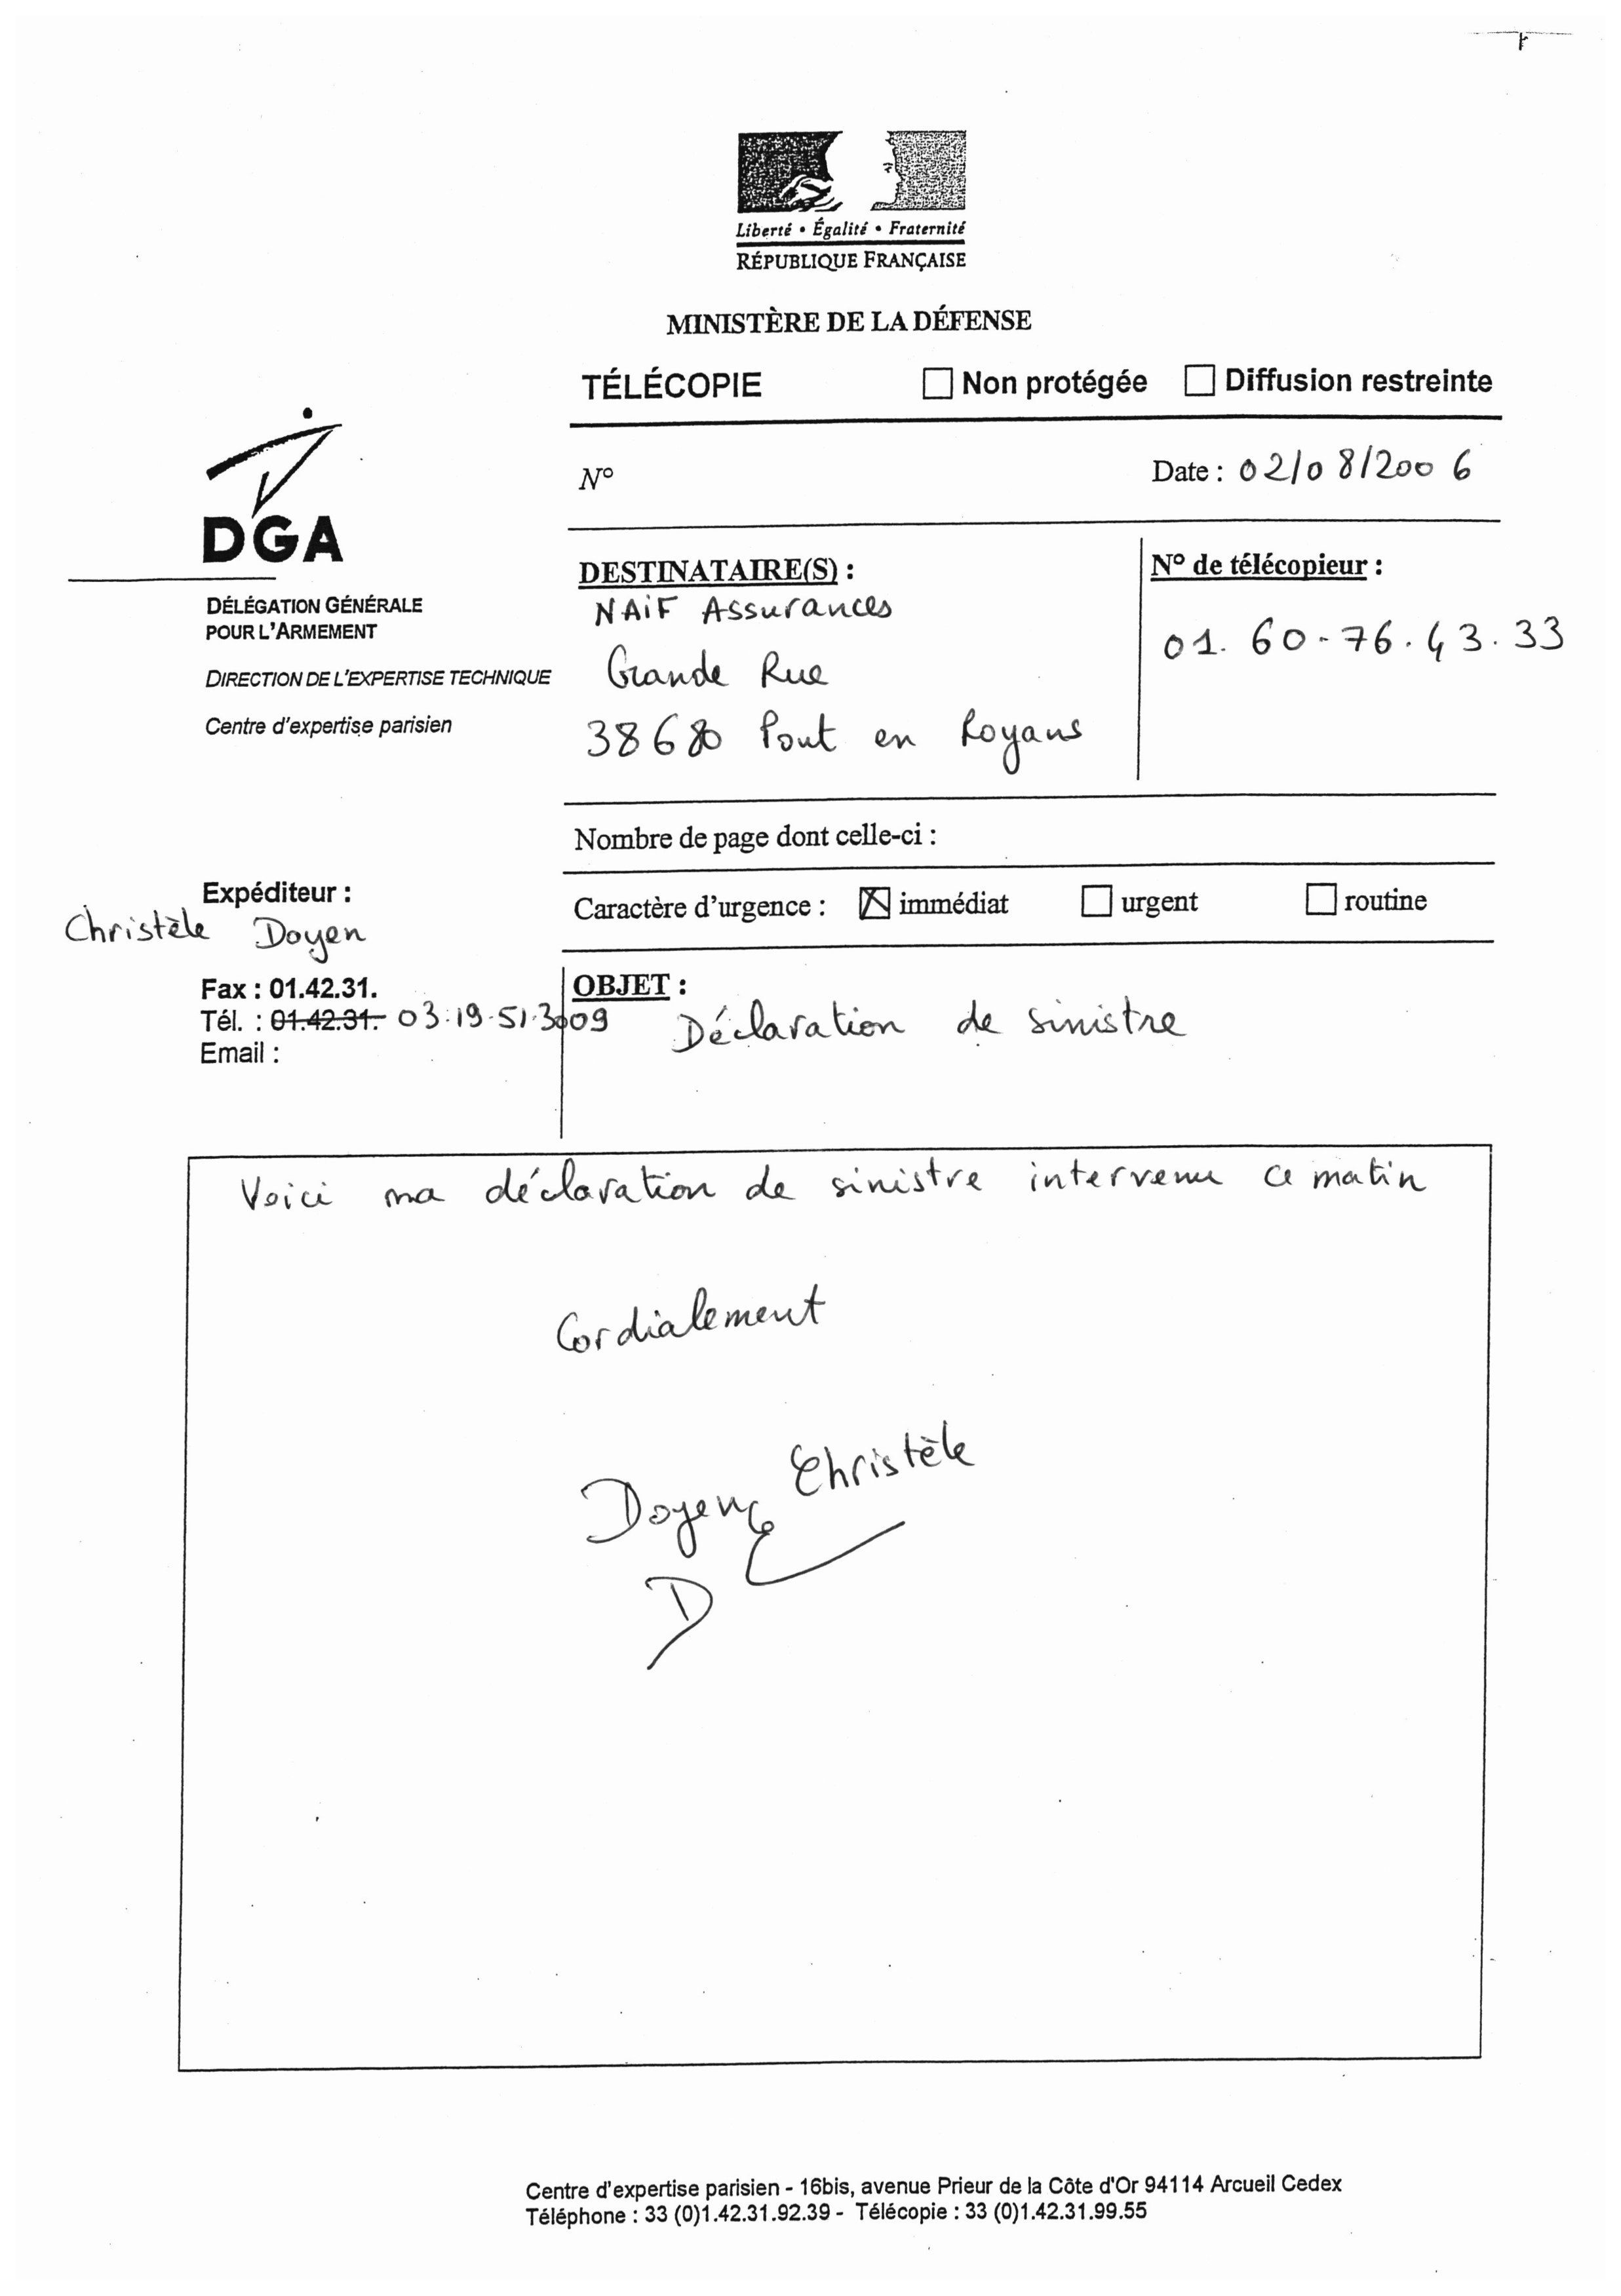 Liberté • Égalité • Fraternité
RÉPUBLIQUE FRANÇAISE
MINISTÈRE DE LA DÉFENSE
TÉLÉCOPIE ☐ Non protégée ☐ Diffusion restreinte
DGA
N° Date : 02/08/2006
DÉLÉGATION GÉNÉRALE
POUR L'ARMEMENT
DIRECTION DE L'EXPERTISE TECHNIQUE
Centre d'expertise parisien
DESTINATAIRE(S) :
NAiF Assurances
Grande Rue
38680 Pont en Royans
N° de télécopieur :
01. 60-76.43.33
Nombre de page dont celle-ci :
Expéditeur :
Christèle Doyen
Caractère d'urgence : ☒ immédiat ☐ urgent ☐ routine
Fax : 01.42.31.
Tél. : 01.42.31. 03.19.51.3009
Email :
OBJET :
Déclaration de sinistre
Voici ma déclaration de sinistre intervenu ce matin
Cordialement
Doyen Christèle
D
Centre d'expertise parisien - 16bis, avenue Prieur de la Côte d'Or 94114 Arcueil Cedex
Téléphone : 33 (0)1.42.31.92.39 - Télécopie : 33 (0)1.42.31.99.55